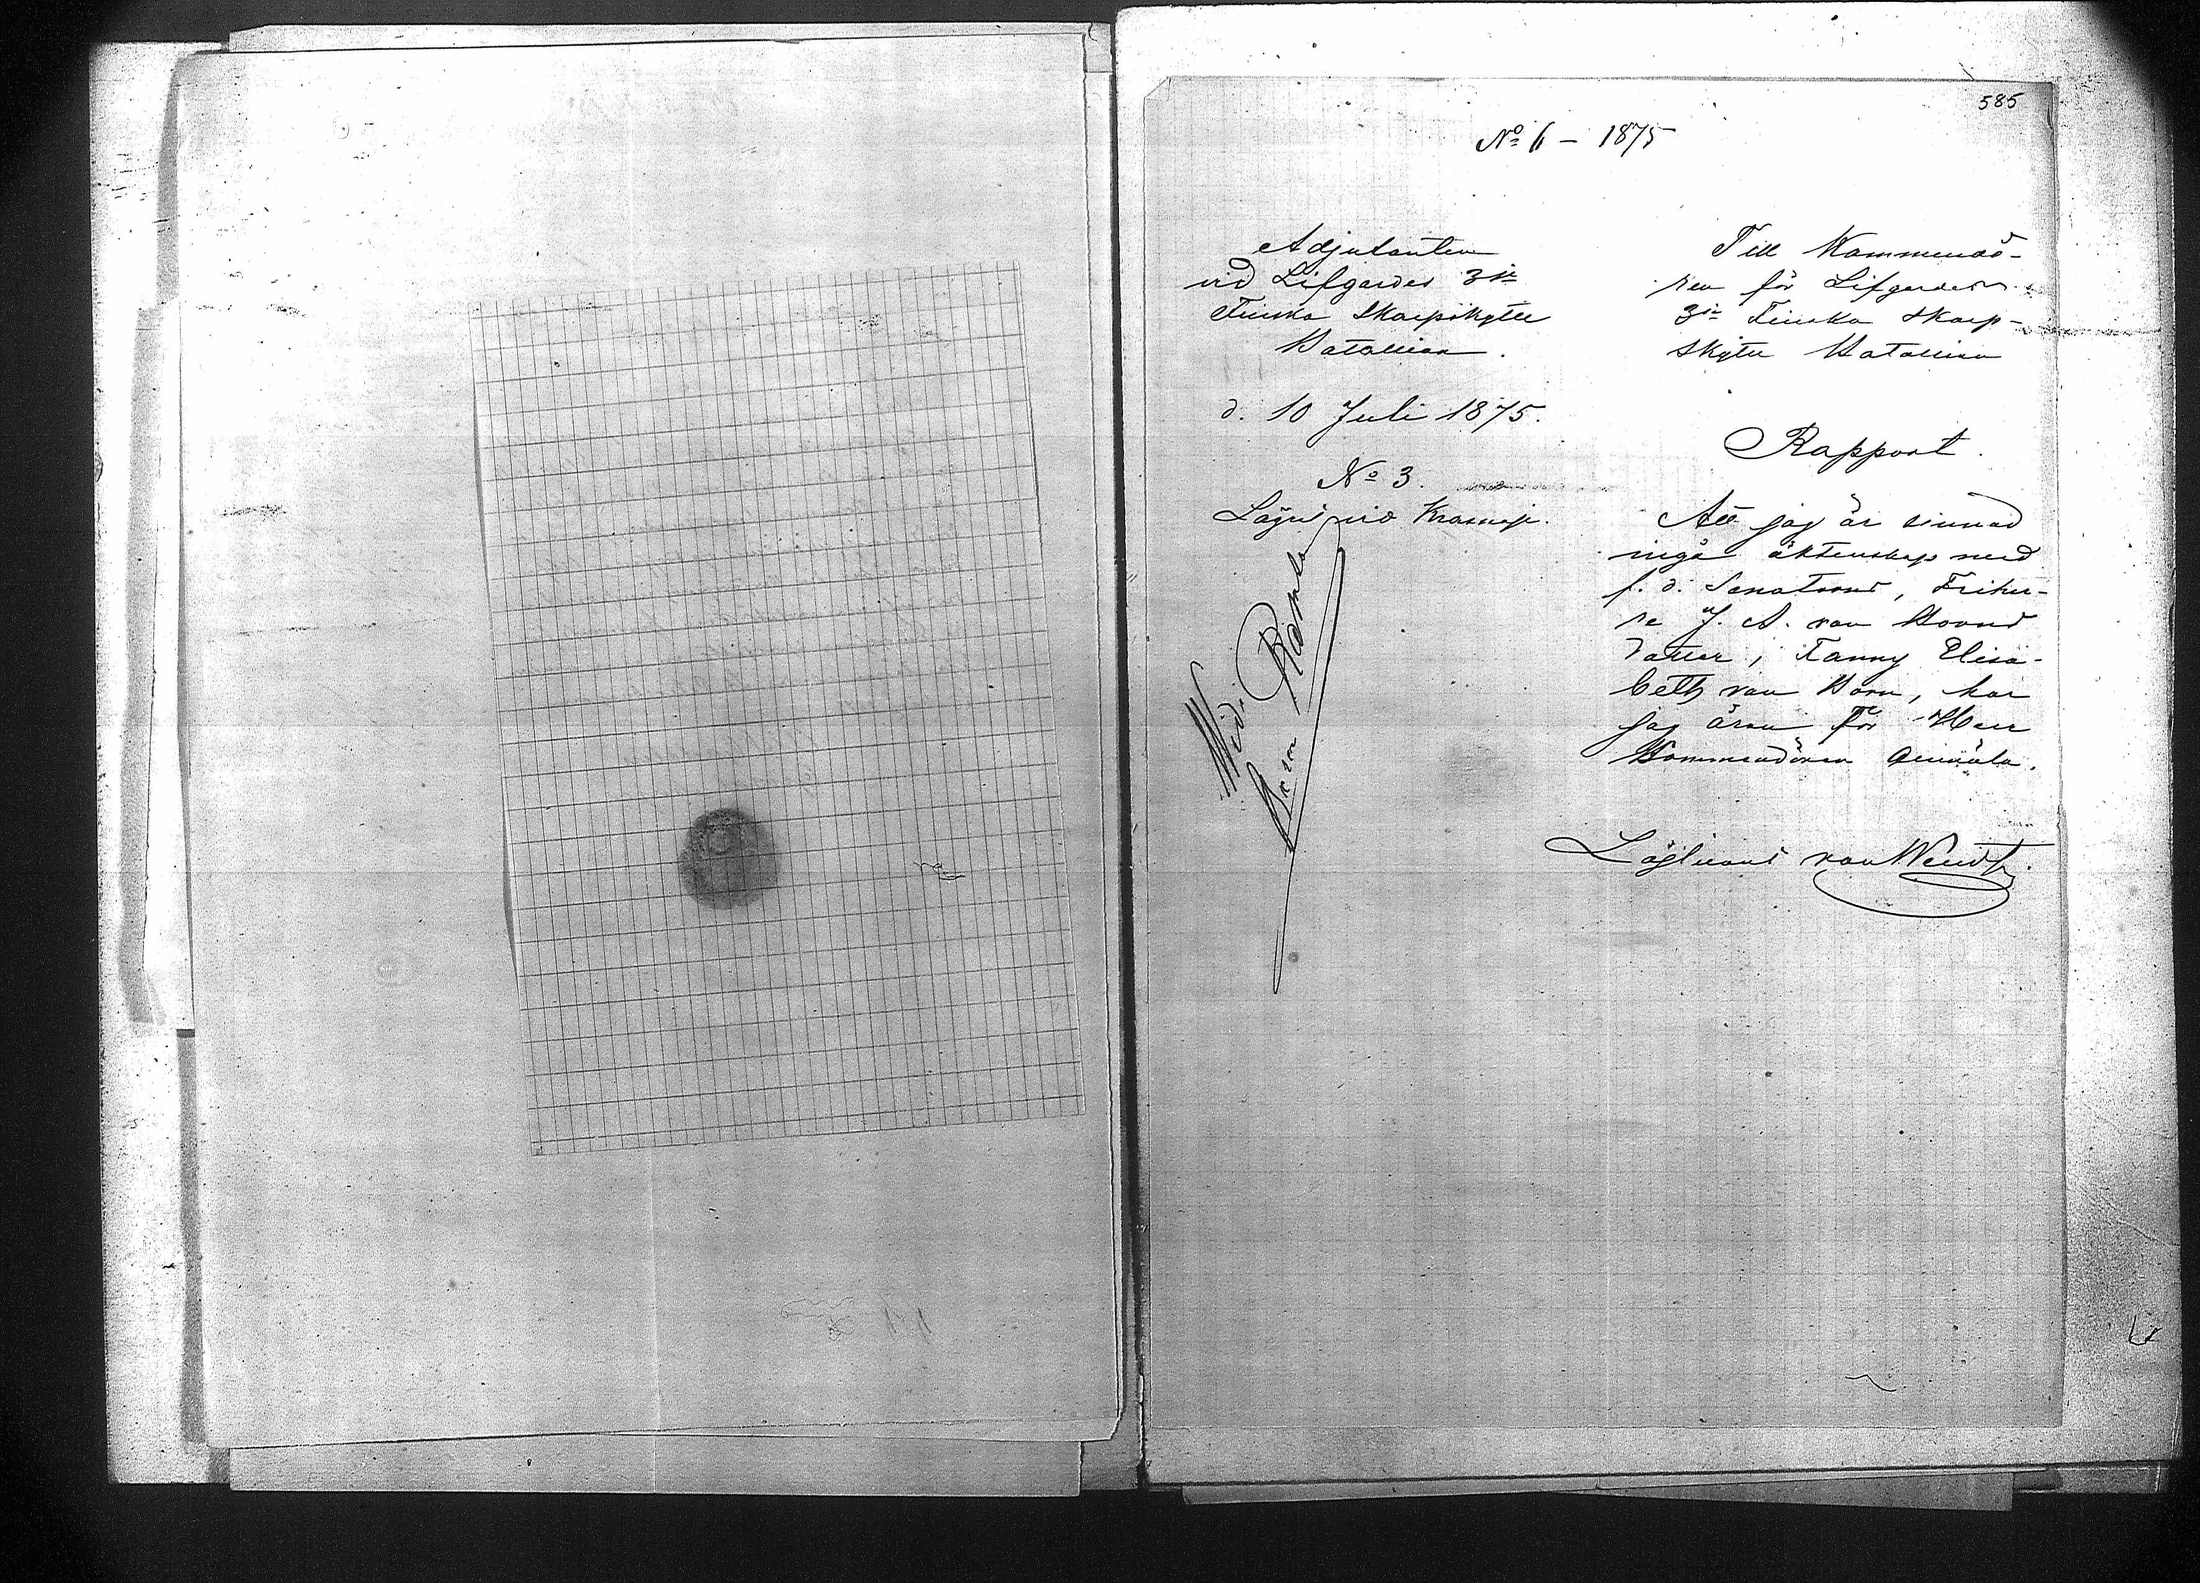 585
No 6 – 1875
Adjutanten
vid Lifgardes 3je
Finska Skarpskytte
Bataillon.
d. 10 Juli 1875.
No 3.
Lägret vid Krasnoje.
Till Kommendö-
ren för Lifgardes
3je Finska Skarp-
skytte Bataillon
Rapport.
Att jag är sinnad
ingå äktenskap med
f. d. Senatorns, Friher-
re J. A. von Borns
dotter, Fanny Elisa-
beth von Born, har
jag äran för Herr
Kommendören anmäla.
Löjtnant von Wendt.